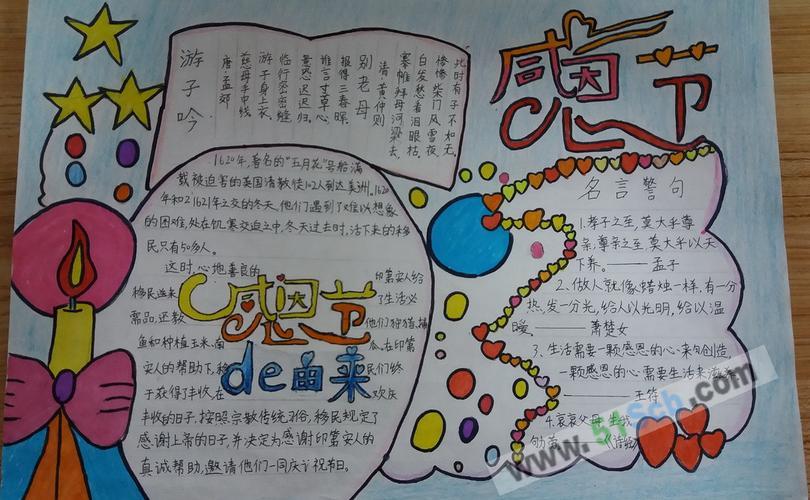 感恩节
游子吟
唐·孟郊
慈母手中线
游子身上衣
临行密密缝
意恐迟迟归。
谁言寸草心
报得三春晖
别老母
清·黄仲则
搴帷拜母河梁去,
白发愁看泪眼枯
惨惨柴门风雪夜
此时有子不如无.
1620年,著名的"五月花"号船满
载被迫害的英国清教徒102人到达美洲。1620
年和1621年之交的冬天,他们遇到了难以想象
的困难,处在饥寒交迫之中,冬天过去时,活下来的移
民只有50多人。
这时,心地善良的 印第安人给
移民送来 了生活必
需品,还教 他们狩猎、捕
鱼和种植玉米、南 瓜,在印第
安人的帮助下,移 民们终
于获得了丰收,在 欢庆
丰收的日子,按照宗教传统习俗,移民规定了
感谢上帝的日子,并决定为感谢印第安人的
真诚帮助,邀请他们一同庆祝节日。
感恩节
de由来
名言警句
1.孝子之至,莫大乎尊
亲;尊亲之至,莫大乎以天
下养。——孟子
2、做人就像蜡烛一样,有一分
热,发一分光,给人以光明,给以温
暖。——萧楚女
3、生活需要一颗感恩的心来创造,
一颗感恩的心需要生活来滋养
——王符
4.哀哀父母,生我
劬劳。——《诗经》
www.51sch.com